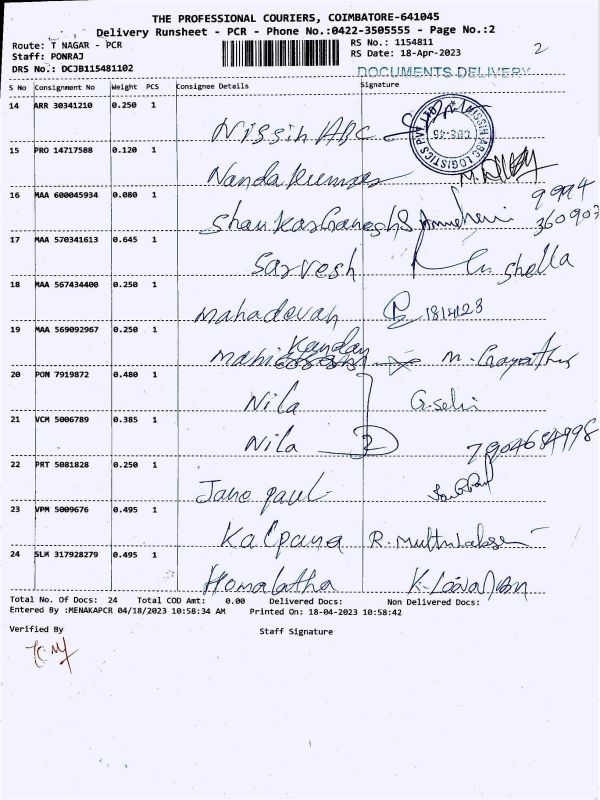 THE PROFESSIONAL COURIERS, COIMBATORE-641045
Delivery Runsheet - PCR - Phone No.:0422-3505555 - Page No.:2
Route: T NAGAR - PCR RS No.: 1154811
Staff: PONRAJ RS Date: 18-Apr-2023 2
DRS No.: DCJB115481102 DOCUMENTS DELIVERY
S No Consignment No Weight PCS Consignee Details Signature
14 ARR 30341210 0.250 1
Nissih ABC
NISSIH ABC LOGISTICS PVT LTD
CBE-45
15 PRO 14717588 0.120 1
Nandakumar
16 MAA 600045934 0.080 1 9994
Shankar Ganesh S 360903
17 MAA 570341613 0.645 1
Sarvesh G. Shella
18 MAA 567434400 0.250 1
Mahadevan 18/4/23
19 MAA 569092967 0.250 1
Manikandan M. Gayathri
20 PON 7919872 0.480 1
Nila G. Selvi
21 VCM 5006789 0.385 1
Nila 7904684998
22 PRT 5081828 0.250 1
Jane paul
23 VPM 5009676 0.495 1
Kalpana
24 SLM 317928279 0.495 1
Homalatha
Total No. Of Docs: 24 Total COD Amt: 0.00 Delivered Docs: Non Delivered Docs:
Entered By :MENAKAPCR 04/18/2023 10:58:34 AM Printed On: 18-04-2023 10:58:42
Verified By Staff Signature